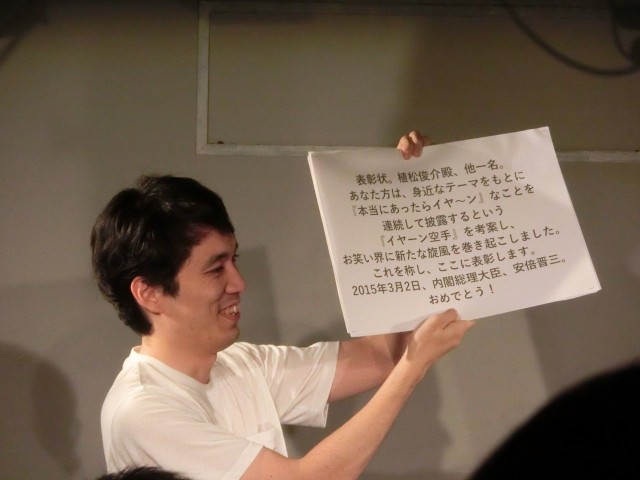 表彰状。植松俊介殿、他一名。
あなた方は、身近なテーマをもとに
『本当にあったらイヤ〜ン』なことを
連続して披露するという
『イヤーン空手』を考案し、
お笑い界に新たな旋風を巻き起こしました。
これを称し、ここに表彰します。
2015年3月2日、内閣総理大臣、安倍晋三。
おめでとう！